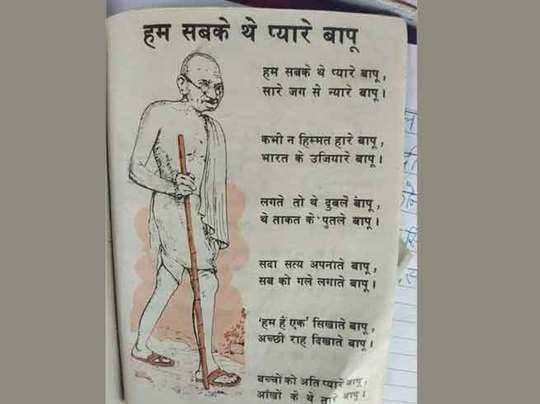 हम सबके थे प्यारे बापू
हम सबके थे प्यारे बापू,
सारे जग से न्यारे बापू।
कभी न हिम्मत हारे बापू,
भारत के उजियारे बापू।
लगते तो थे दुबले बापू,
थे ताकत के पुतले बापू।
सदा सत्य अपनाते बापू,
सब को गले लगाते बापू।
'हम हैं एक' सिखाते बापू,
अच्छी राह दिखाते बापू।
बच्चों को अति प्यारे बापू,
आंखों के थे तारे बापू।